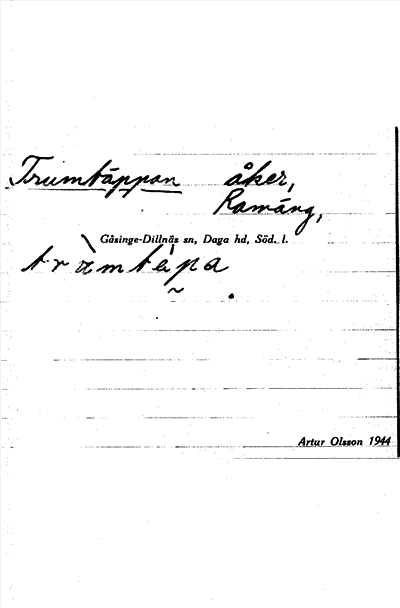 Trumtäppan åker,
Ramäng,
Gåsinge-Dillnäs sn, Daga hd, Söd. l.
Artur Olsson 1944